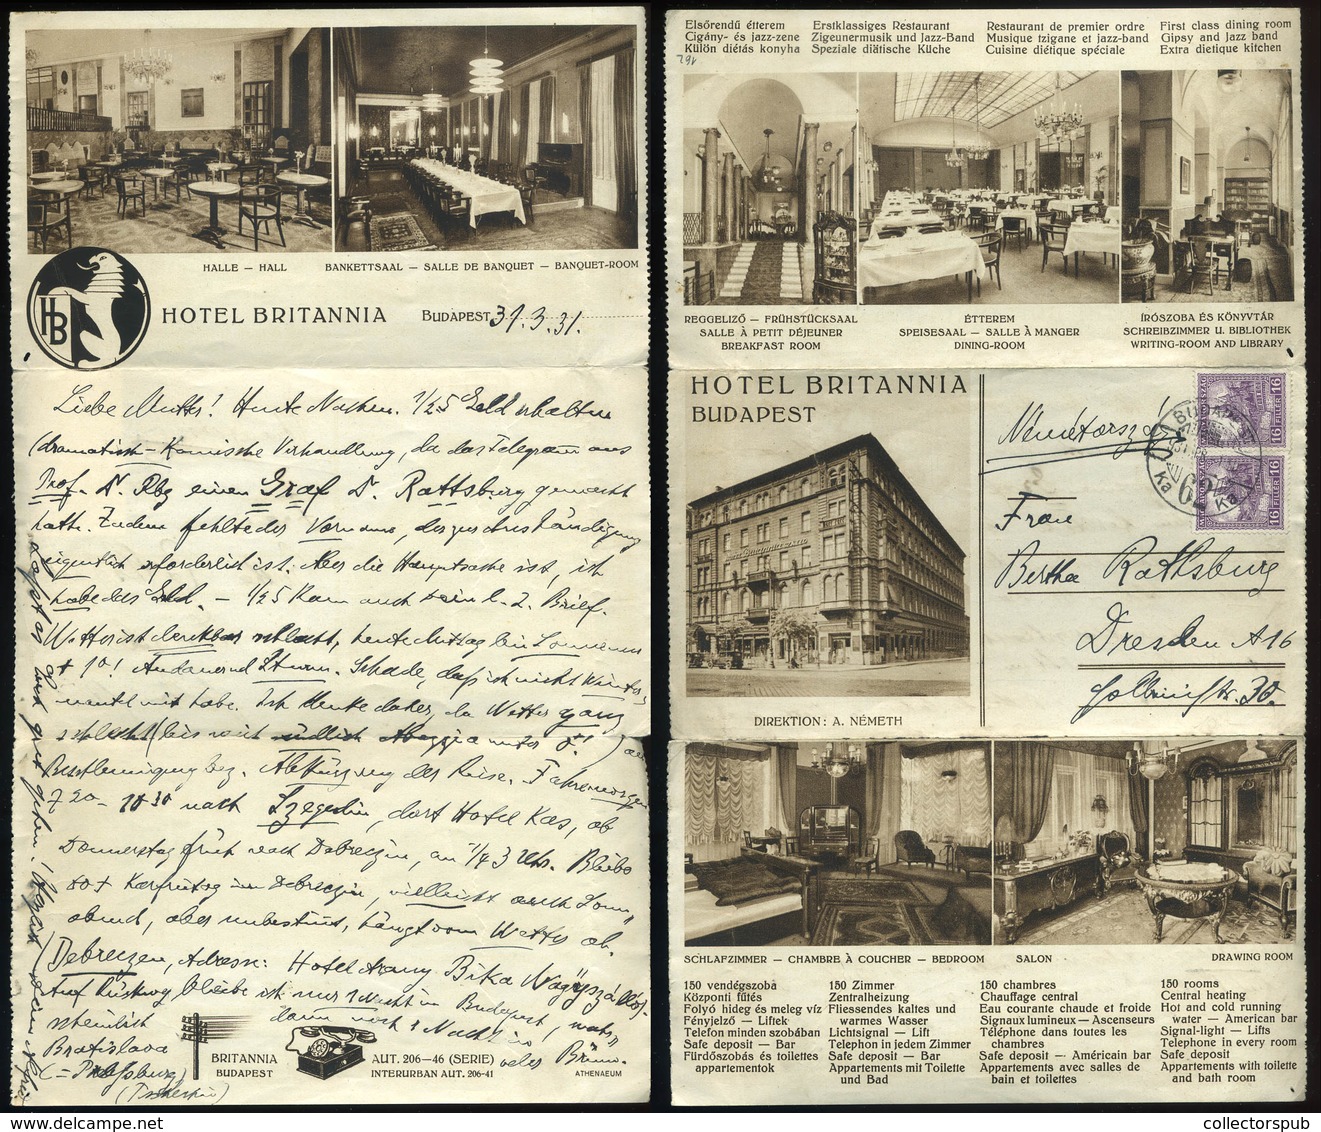 HALLE – HALL
BANKETTSAAL – SALLE DE BANQUET – BANQUET-ROOM
HB
HOTEL BRITANNIA
BUDAPEST 31.3.31.
Liebe Mutter! Heute Nachm. 1/25 Geld erhalten
(dramatisch-komische Verhandlung, da das Telegram aus
Prof. Dr. Rbg einen Graf Dr. Rattsburg gemacht
hatte. Zudem fehlte der Vorname, der zur Aushändigung
eigentlich erforderlich ist. Aber die Hauptsache ist, ich
habe das Geld. – 1/25 kam auch Dein l. 2. Brief.
Wetter ist denkbar schlecht, heute Mittag bei Sonne
+ 1°! Andauernd Sturm. Schade, dass ich nicht Winter-
mantel mit habe. Ich denke daher, da Wetter ganz
schlecht (bis nach Abazzia unter 0°!) an
Beschleunigung bez. Abkürzung der Reise. Fahre morgen
7 20 – 10 30 nach Szegedin, dort Hotel Kas, ab
Donnerstag früh nach Debreczin, an 1/4 3 Uhr. Bleibe
Karfreitag in Debreczin, vielleicht auch Sonn-
abend, aber unbestimmt, hängt vom Wetter ab.
Debreczen, Adresse: Hotel Arany Bika Nagyszálló.
Auf Rückweg bleibe ich nur 1 Nacht in Budapest, wahr-
scheinlich dann noch 1 Nacht in
Bratislava oder Brünn.
(= Pressburg)
gut gehen! Herzlich Dein
BRITANNIA
BUDAPEST
AUT. 206–46 (SERIE)
INTERURBAN AUT. 206-41
ATHENAEUM
Elsőrendű étterem
Cigány- és jazz-zene
Külön diétás konyha
Erstklassiges Restaurant
Zigeunermusik und Jazz-Band
Speziale diätische Küche
Restaurant de premier ordre
Musique tzigane et jazz-band
Cuisine diétique spéciale
First class dining room
Gipsy and jazz band
Extra dietique kitchen
REGGELIZŐ – FRÜHSTÜCKSAAL
SALLE À PETIT DÉJEUNER
BREAKFAST ROOM
ÉTTEREM
SPEISESAAL – SALLE À MANGER
DINING-ROOM
ÍRÓSZOBA ÉS KÖNYVTÁR
SCHREIBZIMMER U. BIBLIOTHEK
WRITING-ROOM AND LIBRARY
HOTEL BRITANNIA
BUDAPEST
DIREKTION: A. NÉMETH
Németország
BUDAPEST
62
Ka
MAGYARORSZÁG
16 FILLÉR 16
MAGYARORSZÁG
16 FILLÉR 16
Frau
Bertha Rathsburg
Dresden A 16
Holbeinstr. 30.
SCHLAFZIMMER – CHAMBRE À COUCHER – BEDROOM
SALON
DRAWING ROOM
150 vendégszoba
Központi fűtés
Folyó hideg és meleg víz
Fényjelző – Liftek
Telefon minden szobában
Safe deposit – Bar
Fürdőszobás és toilettes
appartementok
150 Zimmer
Zentralheizung
Fliessendes kaltes und
warmes Wasser
Lichtsignal – Lift
Telephon in jedem Zimmer
Safe deposit – Bar
Appartements mit Toilette
und Bad
150 chambres
Chauffage central
Eau courante chaude et froide
Signaux lumineux – Ascenseurs
Téléphone dans toutes les
chambres
Safe deposit – Américain bar
Appartements avec salles de
bain et toilettes
150 rooms
Central heating
Hot and cold running
water – American bar
Signal-light – Lifts
Telephone in every room
Safe deposit
Appartements with toilette
and bath room
collectorspub